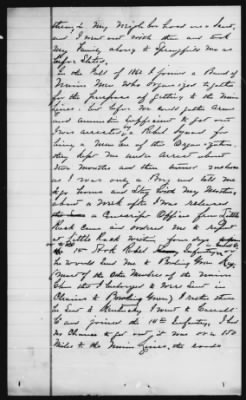 then, & my Neighbor lived on a Farm,
and I went with them and took
my Family along to Springfield Mo as
before Stated,
In the Fall of 1861 I joined a Band of
Union Men Who Organized together
for the purpose of getting to the Union
lines, but before We could gather Arms
and ammunition Sufficient to get out
I was arrested by a Rebel Squad for
being a Member of the Organization,
they kept me under arrest about
two months and then turned me loose
as I was only a Boy and told me
to go home and Stay with My Mother,
about a week after I was released
a Conscript Officer from Little
Rock came and ordered me to report
at Little Rock Within four days
to the 14 Ark Rebel Infantry or
he would Send me to Bowling Green Ky,
(Most of the Other Members of the Union
Clan that I belonged to were Sent in
Chains to Bowling Green) Rather than
be Sent to Kentucky I went to
and joined the 14th Infantry, I had
No Chance to get out, it was over 150
Miles to the Union Lines, the roads